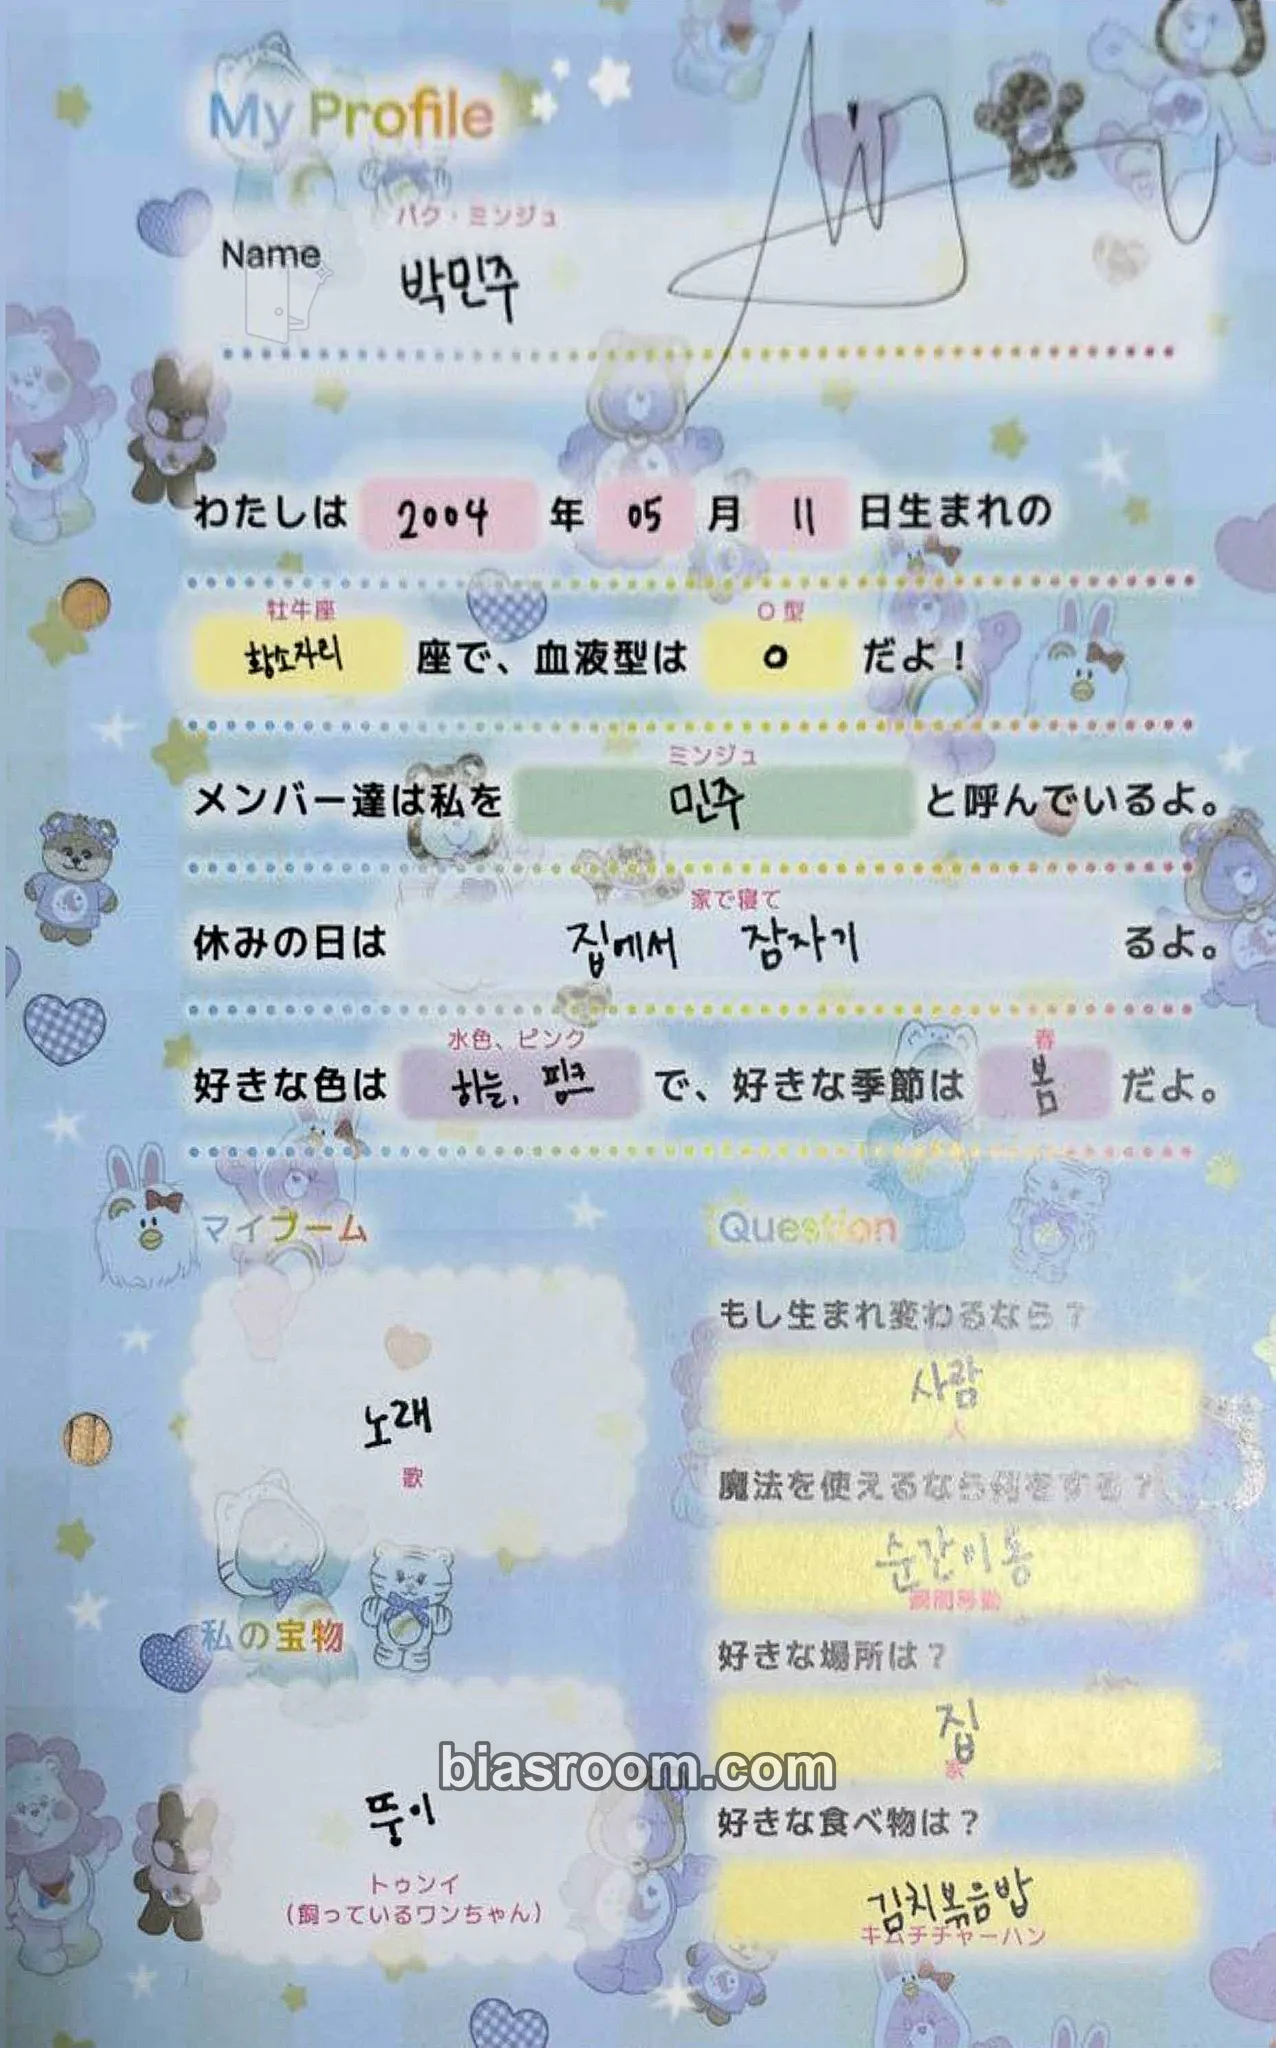 My Profile
パク・ミンジュ
Name 박민주
わたしは 2004 年 05 月 11 日生まれの
牡牛座 O型
황소자리 座で、血液型は O だよ！
ミンジュ
メンバー達は私を 민주 と呼んでいるよ。
家で寝て
休みの日は 집에서 잠자기 るよ。
水色、ピンク 春
好きな色は 하늘, 핑크 で、好きな季節は 봄 だよ。
マイブーム
노래
歌
私の宝物
뚱이
トゥンイ
（飼っているワンちゃん）
Question
もし生まれ変わるなら？
사람
人
魔法を使えるなら何をする？
순간이동
瞬間移動
好きな場所は？
집
家
好きな食べ物は？
김치볶음밥
キムチチャーハン
biasroom.com